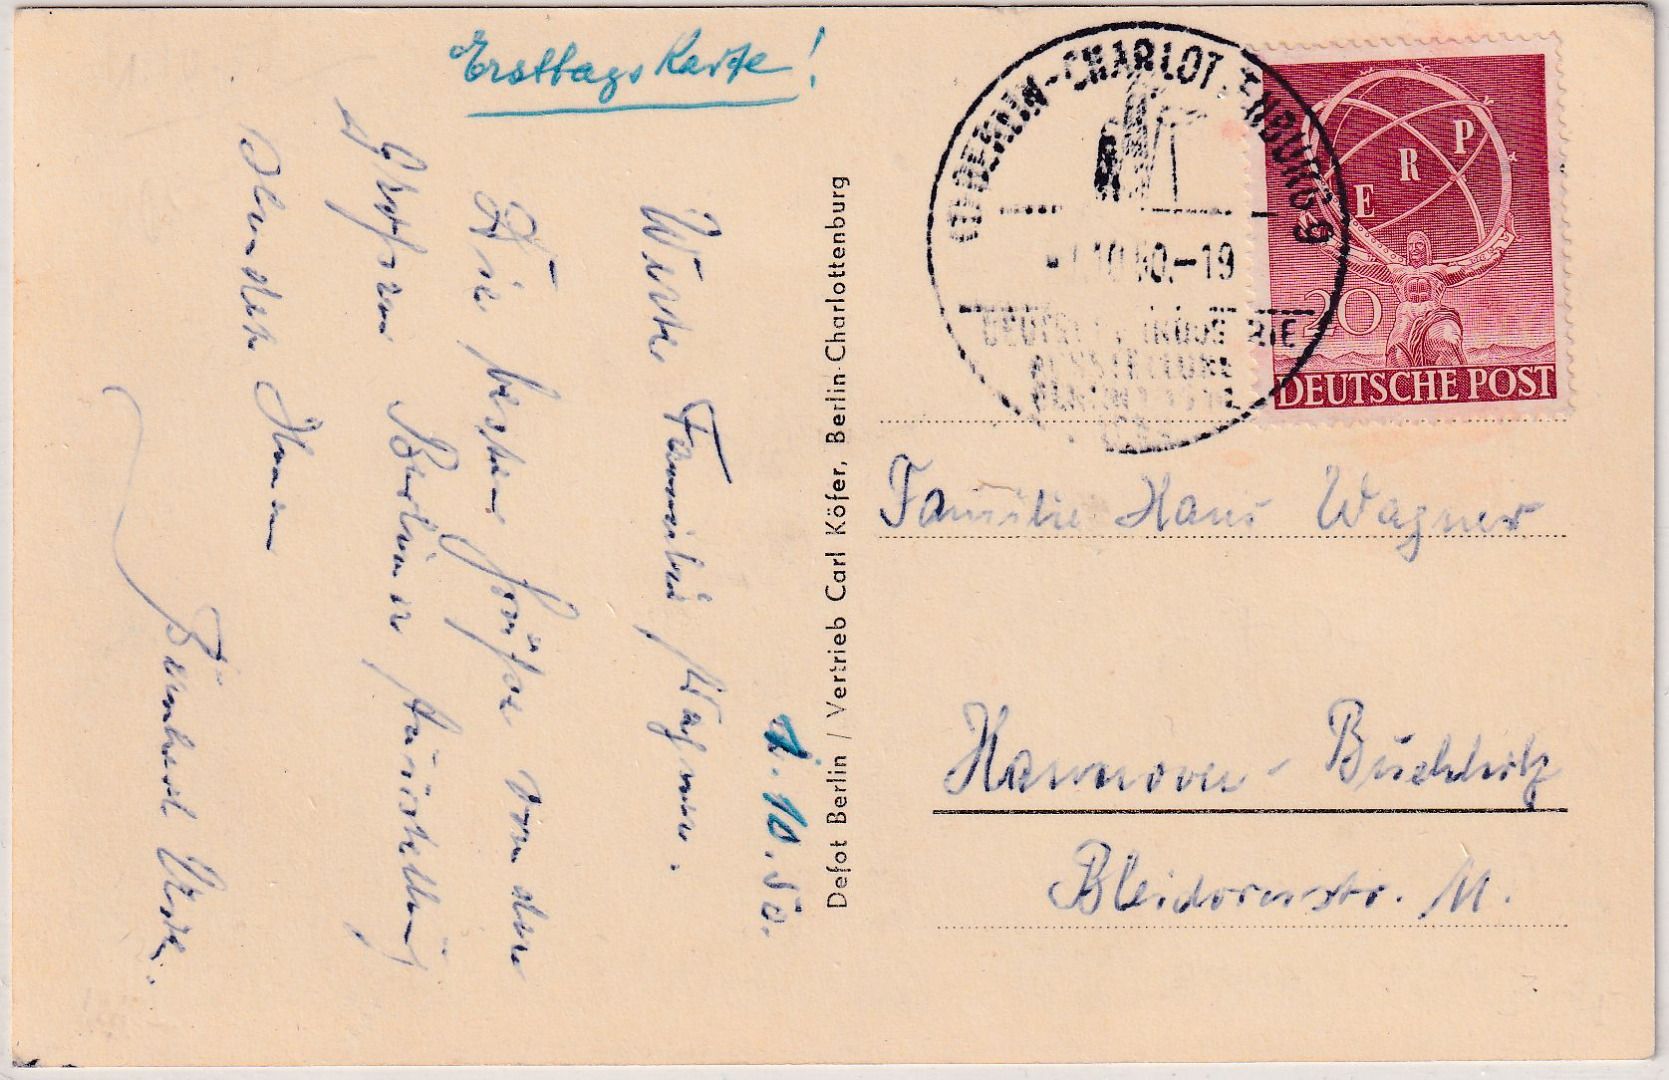 Ersttagskarte!
1.10.50.
Werte Familie Wagner.
Die besten Grüße von der
großen Berliner Ausstellung
sendet Ihnen
Bernhard
Defot Berlin / Vertrieb Carl Köfer, Berlin-Charlottenburg
BERLIN-CHARLOTTENBURG 9
10.50.-19
DEUTSCHE INDUSTRIE
AUSSTELLUNG
BERLIN
E R P
20
DEUTSCHE POST
Familie Hans Wagner
Hannover-Buchholz
Bleidornstr. 11.